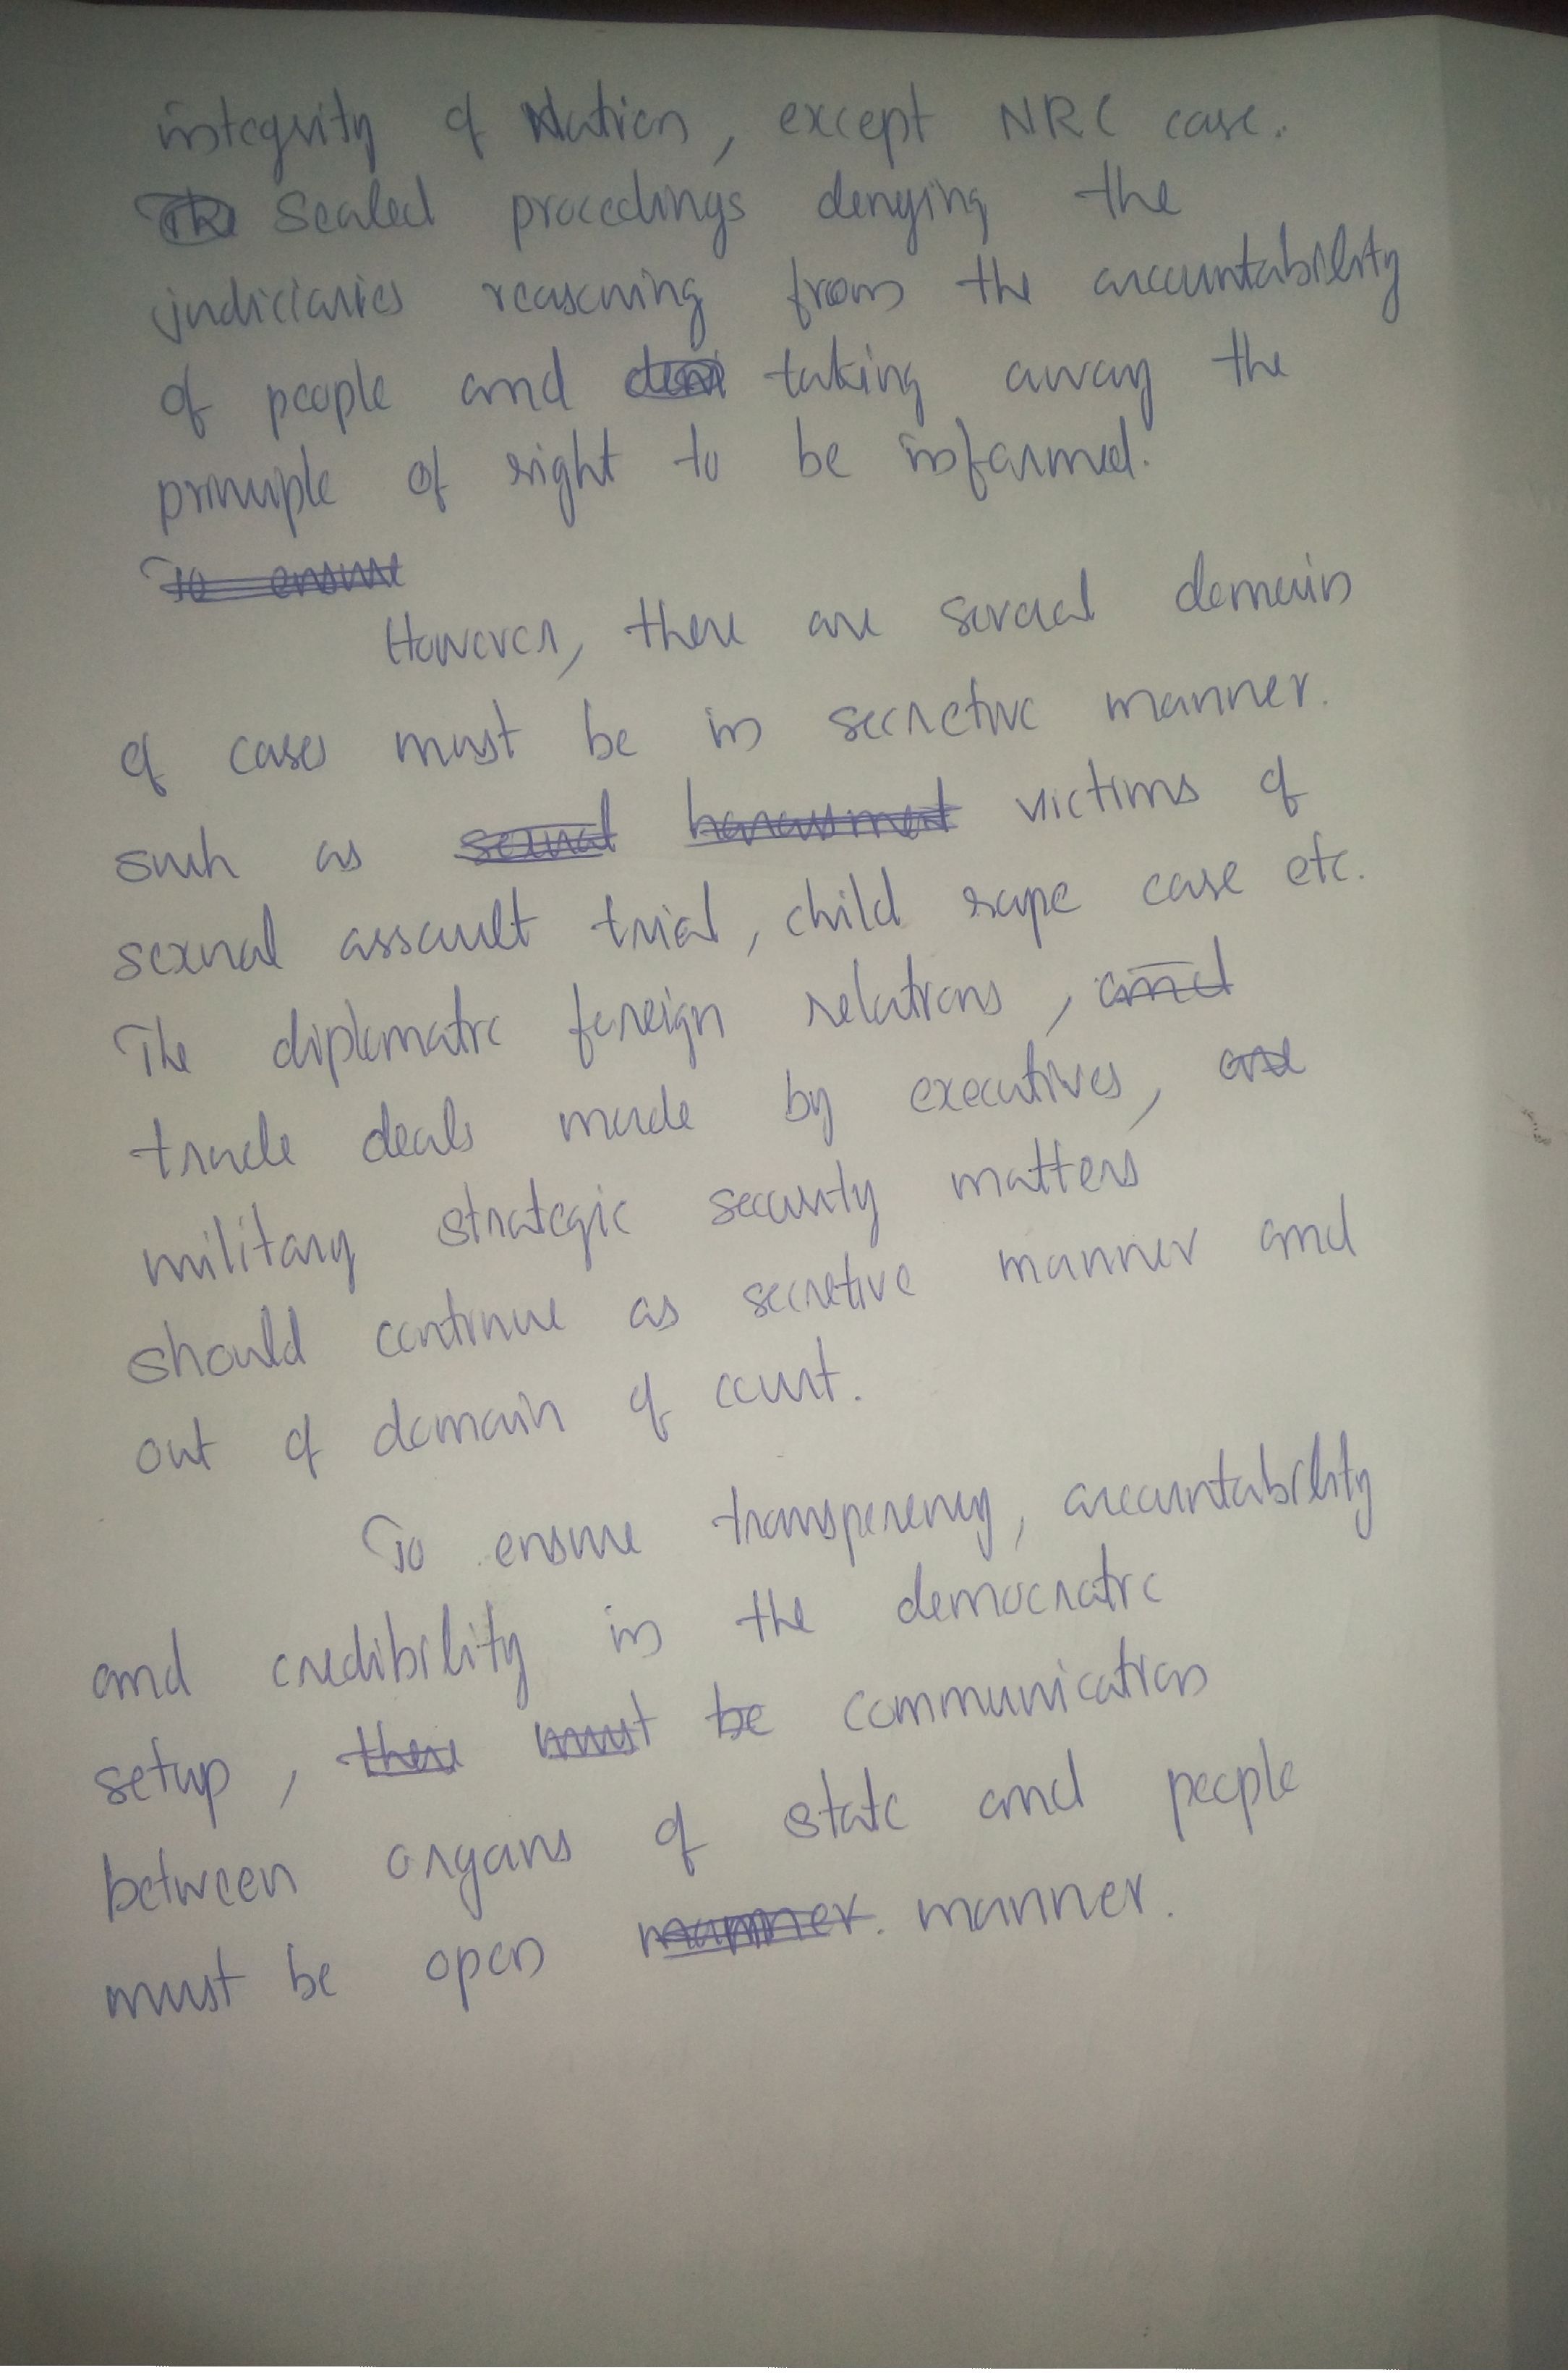 integrity of Nation, except NRC case.
The Sealed procedings denying the
judiciaries reasoning from the accountability
of people and deni taking away the
principle of right to be informed.
To ensure
However, there are several domain
of cases must be in secretive manner.
such as sexual harassment victims of
sexual assault trial, child rape case etc.
The diplomatic foreign relations, and
trade deals made by executives, are
military strategic security matters
should continue as secretive manner and
out of domain of court.
To ensure transperency, accountability
and credibility in the democratic
setup, there must be communication
between organs of state and people
must be open manner. manner.